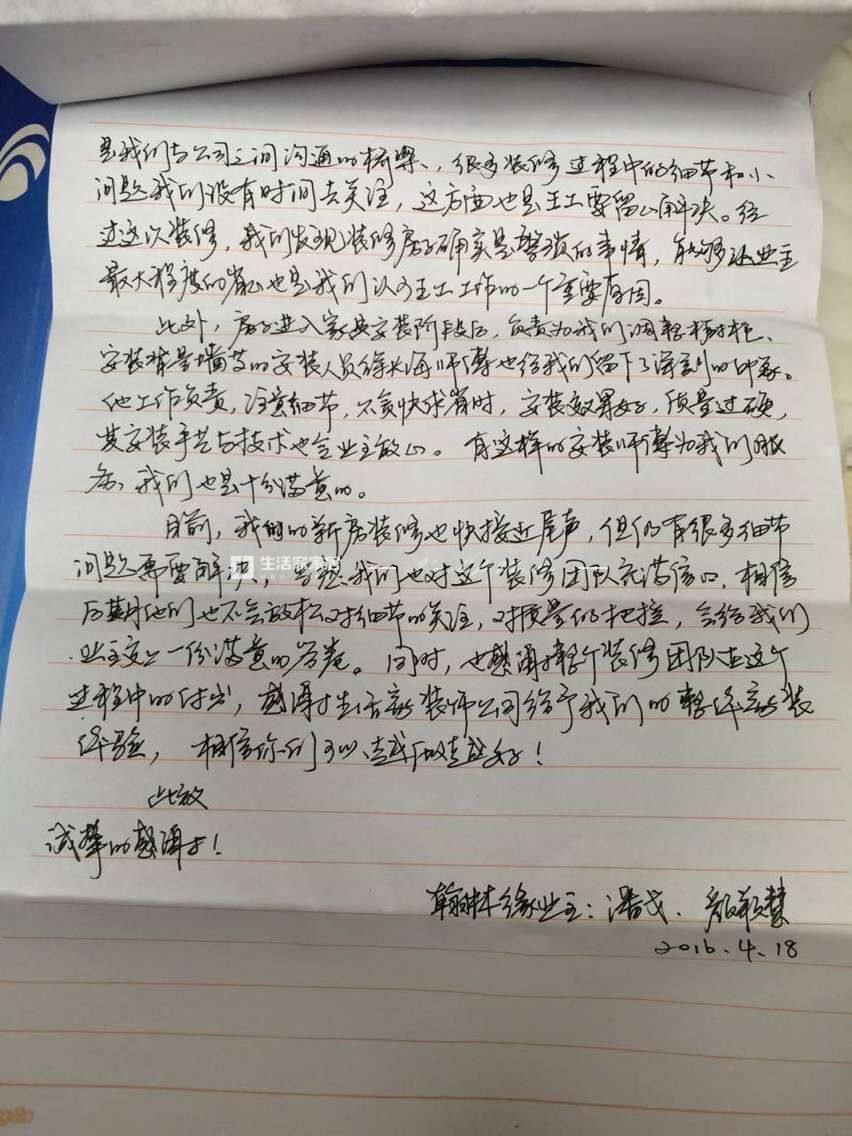 是我们与公司之间沟通的桥梁、,很多装修过程中的细节和小
问题我们没有时间去关注,这方面也是王工要留心解决。经
过这次装修,我们发现装修房子确实是繁琐的事情,能够让业主
最大程度的省心也是我们认可王工工作的一个重要原因。
此外,房子进入家具安装阶段后,负责为我们调整橱柜、
安装背景墙等的安装人员徐长海师傅也给我们留下了深刻的印象。
他工作负责,注意细节,不贪快求省时,安装效果好,质量过硬,
其安装手艺与技术也令业主放心。有这样的安装师傅为我们服
务,我们也是十分满意的。
目前,我们的新房装修也快接近尾声,但仍有很多细节
问题需要解决,当然我们也对这个装修团队充满信心,相信
后期他们也不会放松对细节的关注,对质量的把控,会给我们
业主交上一份满意的答卷。同时,也感谢整个装修团队在这个
过程中的付出,感谢生活家装饰公司给予我们的整体家装
体验,相信你们可以越做越好!
此致
诚挚的感谢!
翰林缘业主:潘戈、颜颖慧
2016.4.18
生活家家居